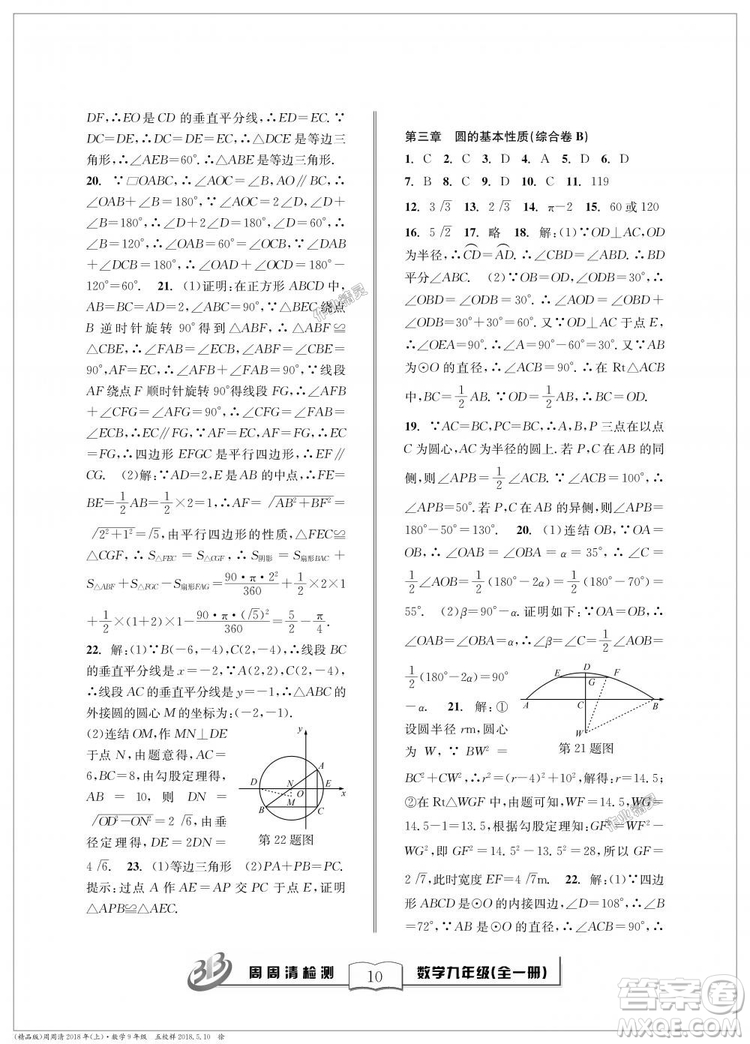 DF,∴EO是CD的垂直平分线,∴ED=EC.∵
DC=DE,∴DC=DE=EC,∴△DCE是等边三
角形,∴∠AEB=60°.∴△ABE是等边三角形.
20. ∵▱OABC,∴∠AOC=∠B,AO∥BC,∴
∠OAB+∠B=180°,∵∠D+∠B=180°,∠AOC=
2∠D,∴∠D+2∠D=180°,∴∠D=60°,∴
∠OAB=60°,∠B=∠AOC=120°,∵∠DAB
+∠DCB=180°,∴∠OAD+∠OCD=180°-
120°=60°. 21. (1)证明:在正方形ABCD中,
AB=BC=AD=2,∠ABC=90°,∵△BEC绕点
B逆时针旋转90°得到△ABF,∴△ABF≌
△CBE,∴∠FAB=∠ECB,∠ABF=∠CBE=
90°,AF=EC,∴∠AFB+∠FAB=90°,∵线段
AF绕点F顺时针旋转90°得线段FG,∴∠AFB
+∠CFG=∠AFG=90°,∴∠CFG=∠FAB=
∠ECB,∴EC∥FG,∵AF=EC,AF=FG,∴EC=
FG,∴四边形EFGC是平行四边形,∴EF∥
CG. (2)解:∵AD=2,E是AB的中点,∴FE=
BE=1/2AB=1/2×2=1,∴AF=√(AB²+BF²)=
√(2²+1²)=√5,由平行四边形的性质,△FEC≌
△CGF,∴S△FEC=S△CGF,∴S阴影=S扇形BAC+
S△ABF+S△FGC-S扇形FAG=90·π·2²/360+1/2×2×1
+1/2×(1+2)×1-90·π·(√5)²/360=5/2-π/4.
22. 解:(1)∵B(-6,-4),C(2,-4),∴线段BC
的垂直平分线是x=-2,∵A(2,2),C(2,-4),
∴线段AC的垂直平分线是y=-1,∴△ABC的
外接圆的圆心M的坐标为:(-2,-1).
(2)连结OM,作MN⊥DE
于点N,由题意得,BC=8,AC=
6,∴由勾股定理得,
AB=10,则DN=
√(OD²-ON²)=2√6,由垂
径定理得,DE=2DN=
4√6. 23. (1)等边三角形 (2)PA+PB=PC.
提示:过点A作AE=AP交PC于点E,证明
△APB≌△AEC.
y
A
D
N
E
O
x
M
B
C
第22题图
第三章 圆的基本性质(综合卷B)
1. C 2. C 3. D 4. A 5. C 6. D
7. B 8. C 9. D 10. C 11. 119
12. 3√3 13. 2√3 14. π-2 15. 60或120
16. 5√2 17. 略 18. 解:(1)∵OD⊥AC,OD
为半径,∴CD=AD.∴∠CBD=∠ABD.∴BD
平分∠ABC. (2)∵OB=OD,∠ODB=30°,∴
∠OBD=∠ODB=30°,∴∠AOD=∠OBD+
∠ODB=30°+30°=60°.∵OD⊥AC于点E,∴
∠OEA=90°.∴∠A=180°-90°-60°=30°.∵
AB为⊙O的直径,∴∠ACB=90°.在Rt△ACB
中,BC=1/2AB,∵OD=1/2AB,∴BC=OD.
19. ∵AC=BC,PC=BC,∴A,B,P三点在以点
C为圆心,AC为半径的圆上.若A,B在P的同
侧,则∠APB=1/2∠ACB=1/2×100°=50°,∴
∠APB=50°.若P在AB的异侧,则∠APB=
180°-50°=130°. 20. (1)连结OB,∵OA=
OB,∴∠OAB=∠OBA=α=35°,∴β=∠C
=1/2∠AOB=1/2(180°-2α)=1/2(180°-70°)=
55°. (2)β=90°-α.证明如下:∵OA=OB,∴
∠OAB=∠OBA=α,∴β=∠C=1/2∠AOB=
1/2(180°-2α)=90°
-α. 21. 解:①
设圆半径rm,圆心
为W,∵BW²=
D
E
F
G
A
C
B
W
第21题图
BC²+CW²,∴r²=(r-4)²+10²,解得:r=14.5;
②在Rt△WGF中,由题可知,WF=14.5,WG=
14.5-1=13.5,根据勾股定理可知:GF²=WF²-
WG²,即GF²=14.5²-13.5²=28,所以GF=
2√7,此时宽度EF=4√7m. 22. 解:(1)∵四边
形ABCD是⊙O的内接四边形,∠D=108°,∴
∠B=72°.∵BC是⊙O的直径,∴∠BAC=90°,
周周清检测 10 数学九年级(全一册)
(精品版)周周清2018年(上)·数学9年级 五校样2018.5.10 徐